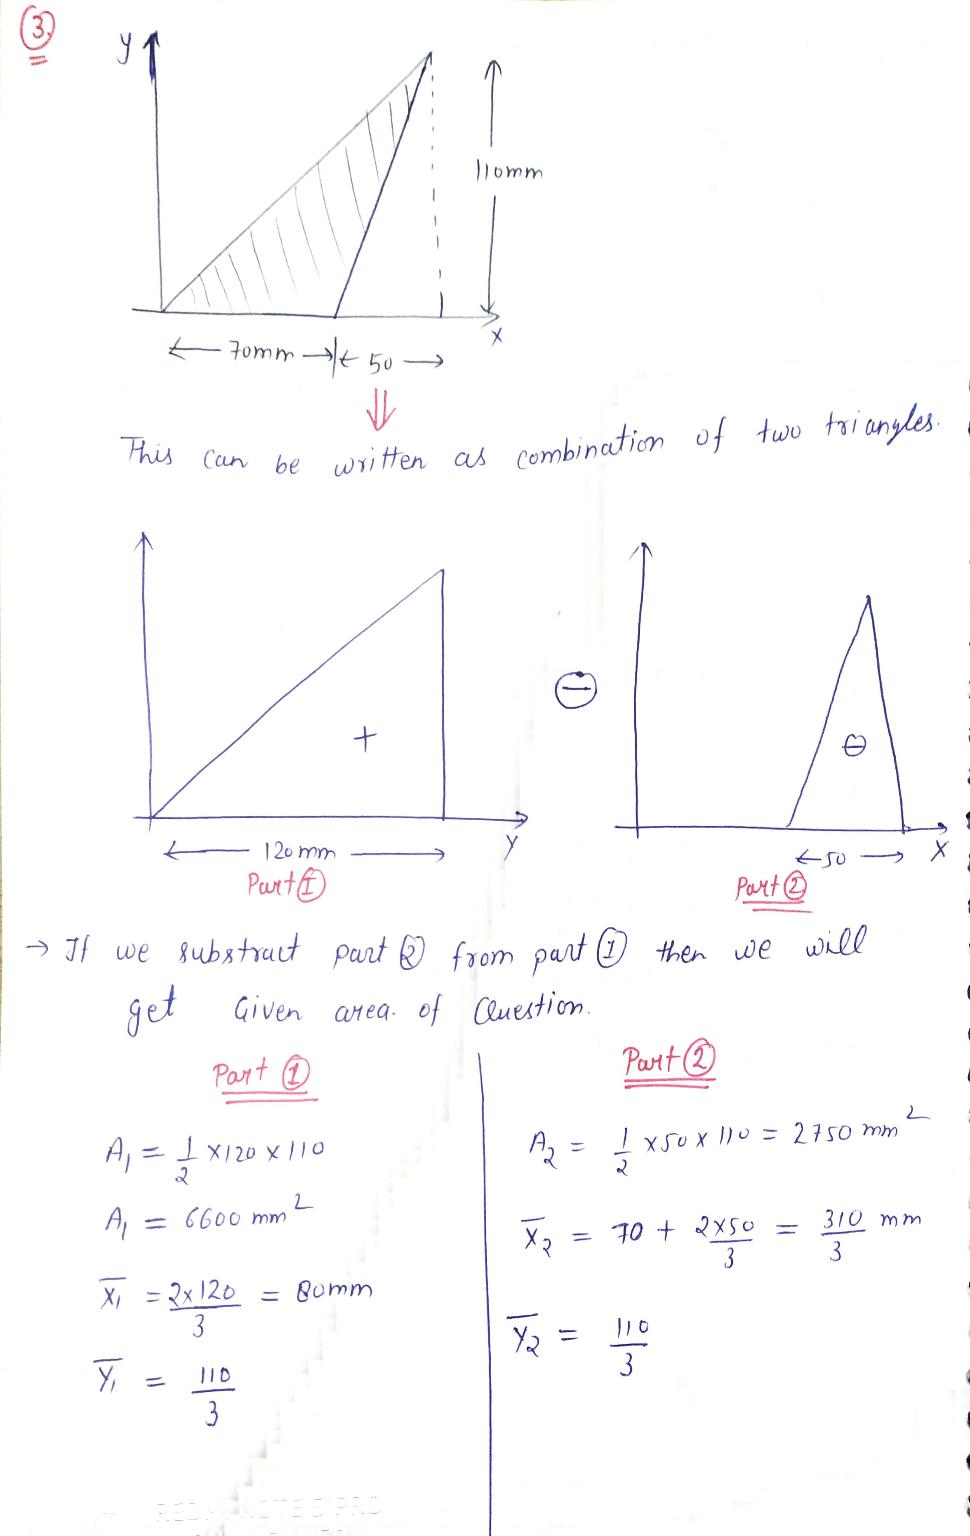 3.
y
110mm
x
70mm 50
⇓
This can be written as combination of two triangles.
+
⊖
⊖
120mm
y
50
x
Part ①
Part ②
→ If we substract part ② from part ① then we will
get Given area. of Question.
Part ①
A₁ = 1/2 × 120 × 110
A₁ = 6600 mm²
X̄₁ = 2×120/3 = 80mm
Ȳ₁ = 110/3
Part ②
A₂ = 1/2 × 50 × 110 = 2750 mm²
X̄₂ = 70 + 2×50/3 = 310/3 mm
Ȳ₂ = 110/3